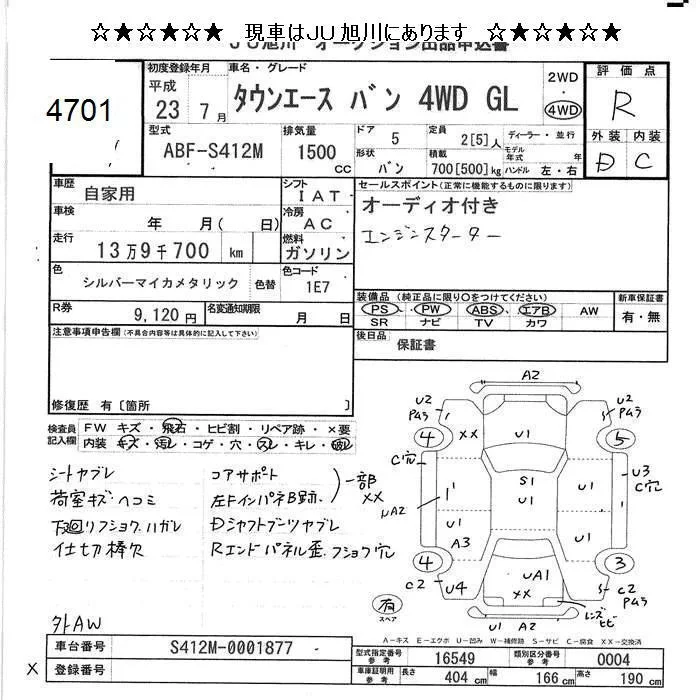 ☆★☆★☆★ 現車はJU旭川にあります ☆★☆★☆★
JU旭川 オークション出品申込書
4701
初度登録年月 車名・グレード 2WD 評価点
平成 23 7月 タウンエース バン 4WD GL ・ 4WD R
型式 排気量 ドア 定員 ディーラー・並行 外装 内装
ABF-S412M 1500 CC 5 2[5]人 モデル年式 年 D C
形状 積載 ハンドル 左・右
バン 700[500]kg
車歴 自家用 シフト IAT セールスポイント(正常に機能するものに限ります)
車検 年 月( 日) 冷房 AC オーディオ付き
走行 13万9千700 km 燃料 ガソリン エンジンスターター
色 シルバーマイカメタリック 色替 色コード 1E7
装備品(純正品に限り○をつけてください) 新車保証書
R券 9,120円 名変通知期限 月 日 PS・PW・ABS・エアB・AW 有・無
SR ナビ TV カワ
注意事項申告欄(不具合内容等は具体的に記入して下さい) 後日品 保証書
修復歴 有〔箇所 〕
検査員記入欄 FW キズ・飛石・ヒビ割・リペア跡・×要
内装 キズ・汚レ・コゲ・穴・スレ・キレ・破レ
シートヤブレ コアサポート
荷室キズ・ヘコミ 左FインパネB跡 一部 ××
下回リフショク.ハガレ Dシャフトブーツヤブレ
仕切棒欠 Rエンドパネル歪.フショク穴
外AW
A2
U2 PA3 U2 PA3
4 ×× U1 5
C穴 S1 U3 C穴
UA2 U1 U1
U1 U1
A3
4 3
C2 U4 UA1 ×× C2 PA3
有 スペア U1 A2 レンズヒビ
A－キズ E－エクボ U－凹み W－補修跡 S－サビ C－腐食 XX－交換済
車台番号 S412M-0001877 型式指定番号 参考 16549 類別区分番号 参考 0004
X 登録番号 車庫証明用 参考 長さ 404 cm 幅 166 cm 高さ 190 cm